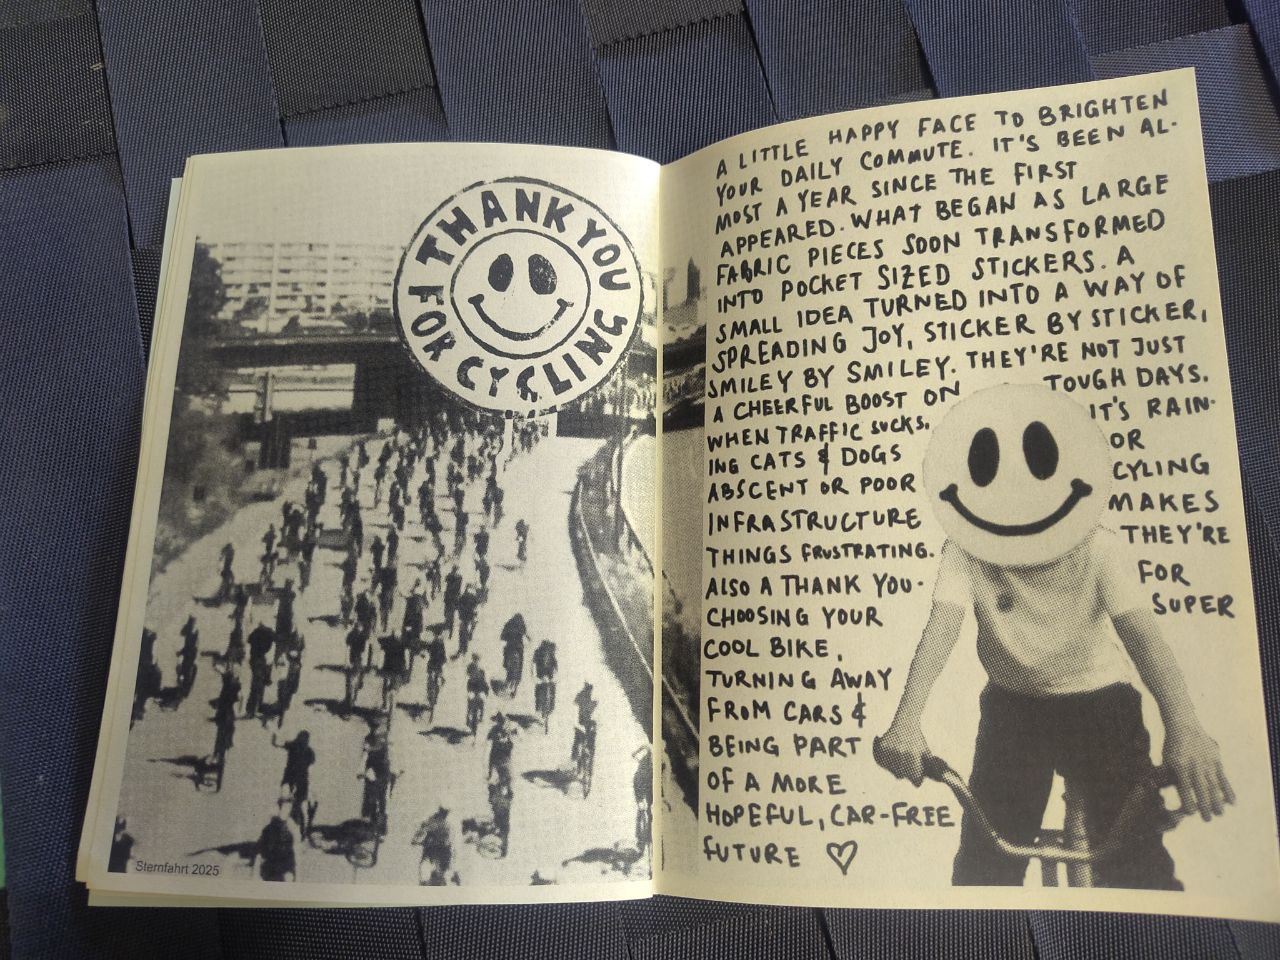 THANK YOU
FOR CYCLING
Sternfahrt 2025
A LITTLE HAPPY FACE TO BRIGHTEN
YOUR DAILY COMMUTE. IT'S BEEN AL-
MOST A YEAR SINCE THE FIRST
APPEARED. WHAT BEGAN AS LARGE
FABRIC PIECES SOON TRANSFORMED
INTO POCKET SIZED STICKERS. A
SMALL IDEA TURNED INTO A WAY OF
SPREADING JOY, STICKER BY STICKER,
SMILEY BY SMILEY. THEY'RE NOT JUST
A CHEERFUL BOOST ON TOUGH DAYS.
WHEN TRAFFIC SUCKS. IT'S RAIN-
ING CATS & DOGS OR
ABSCENT OR POOR CYLING
INFRASTRUCTURE MAKES
THINGS FRUSTRATING. THEY'RE
ALSO A THANK YOU- FOR
CHOOSING YOUR SUPER
COOL BIKE,
TURNING AWAY
FROM CARS &
BEING PART
OF A MORE
HOPEFUL, CAR-FREE
FUTURE